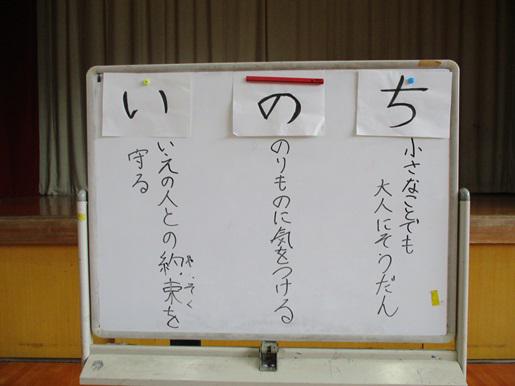 い
の
ち
いえの人との約束を
守る
のりものに気をつける
小さなことでも
大人にそうだん
や
くそく